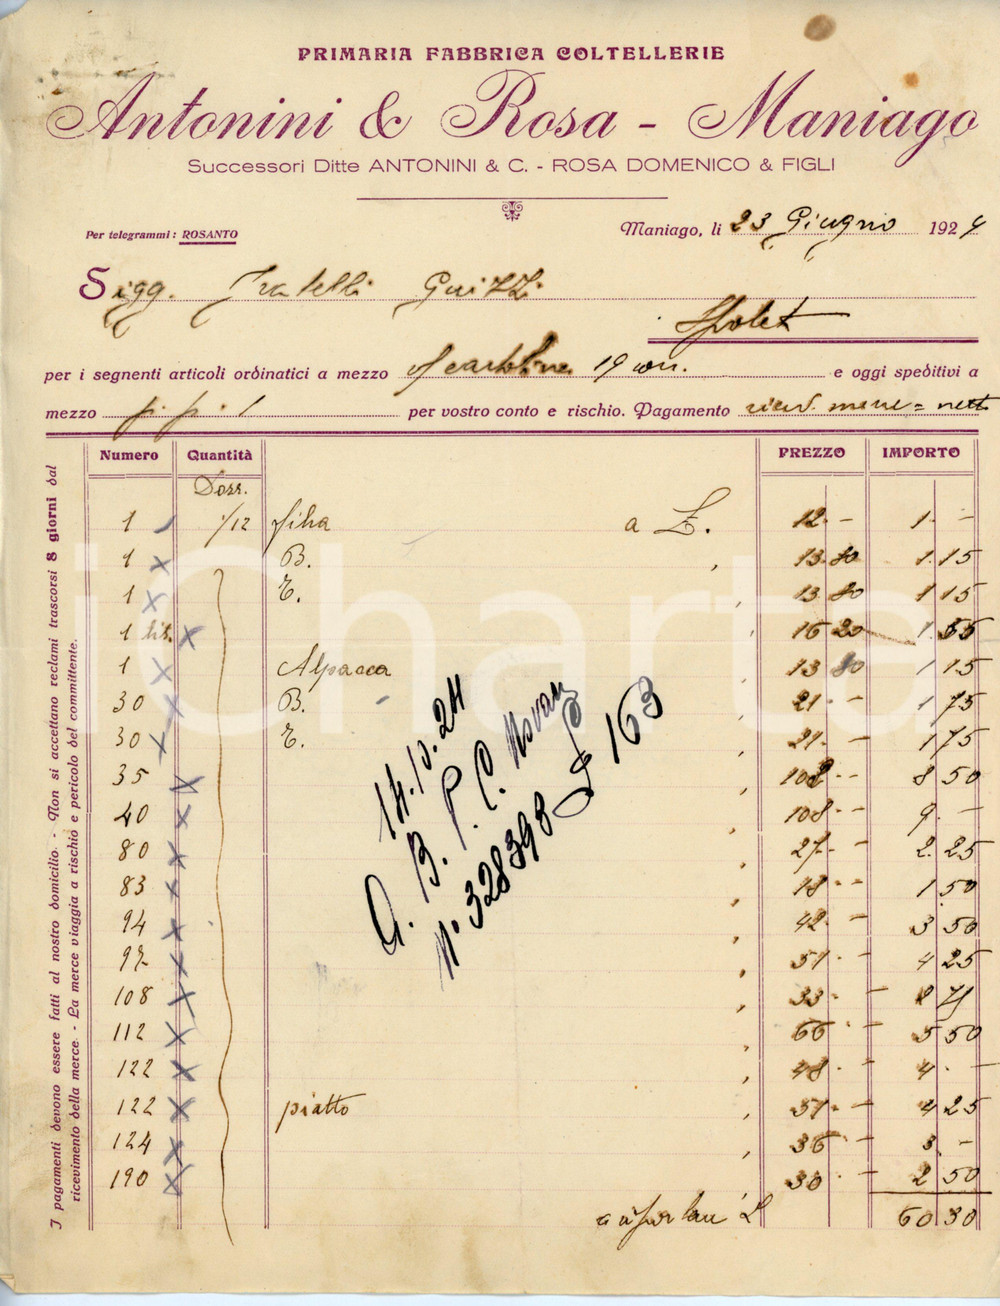 PRIMARIA FABBRICA COLTELLERIE
Antonini & Rosa - Maniago
Successori Ditte ANTONINI & C. - ROSA DOMENICO & FIGLI
Per telegrammi: ROSANTO
Maniago, li 23 Giugno 1924
Sigg. Fratelli Guizzi
Spolet
per i segnenti articoli ordinatici a mezzo 19 e oggi spediti a
mezzo p. p. 1 per vostro conto e rischio. Pagamento merce = netto
Numero Quantità PREZZO IMPORTO
Dozz.
1 1/12 fiha a L. 12. - 1. -
1 B. 13.80 1.15
1 T. 13.80 1.15
1 16.20
1 Alpacca 13.80 1.15
30 B. 21 - 1.75
30 T. 21. - 1.75
35 102 - 8.50
40 108 - 9. -
80 27 - 2.25
83 18 - 1.50
94 42 - 3.50
97 51 - 4.25
108 33 - 2.75
112 66 - 5.50
122 48 - 4. -
122 piatto 51 - 4.25
124 36 - 3. -
190 30 - 2.50
L 60.30
14.10.24
A. B. P. C. Novara
N° 328398 £ 163
I pagamenti devono essere fatti al nostro domicilio. - Non si accettano reclami trascorsi 8 giorni dal
ricevimento della merce. - La merce viaggia a rischio e pericolo del committente.
iCharta